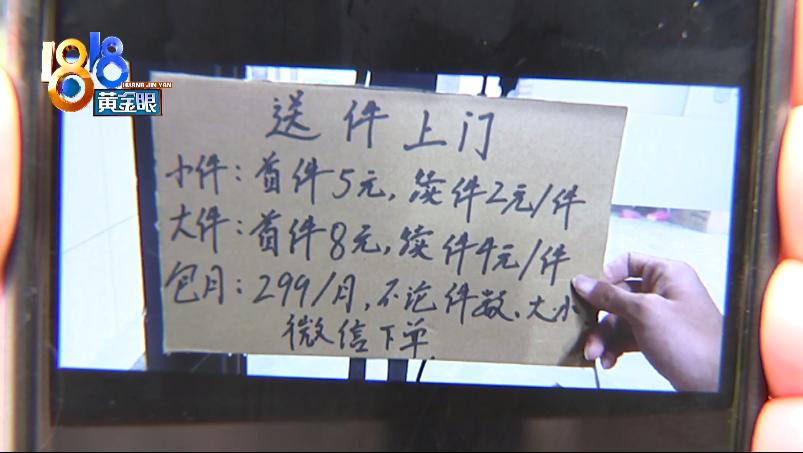 1818
HUANG JIN YAN
黄金眼
送件上门
小件：首件5元，续件2元/件
大件：首件8元，续件4元/件
包月：299/月，不论件数、大小
微信下单